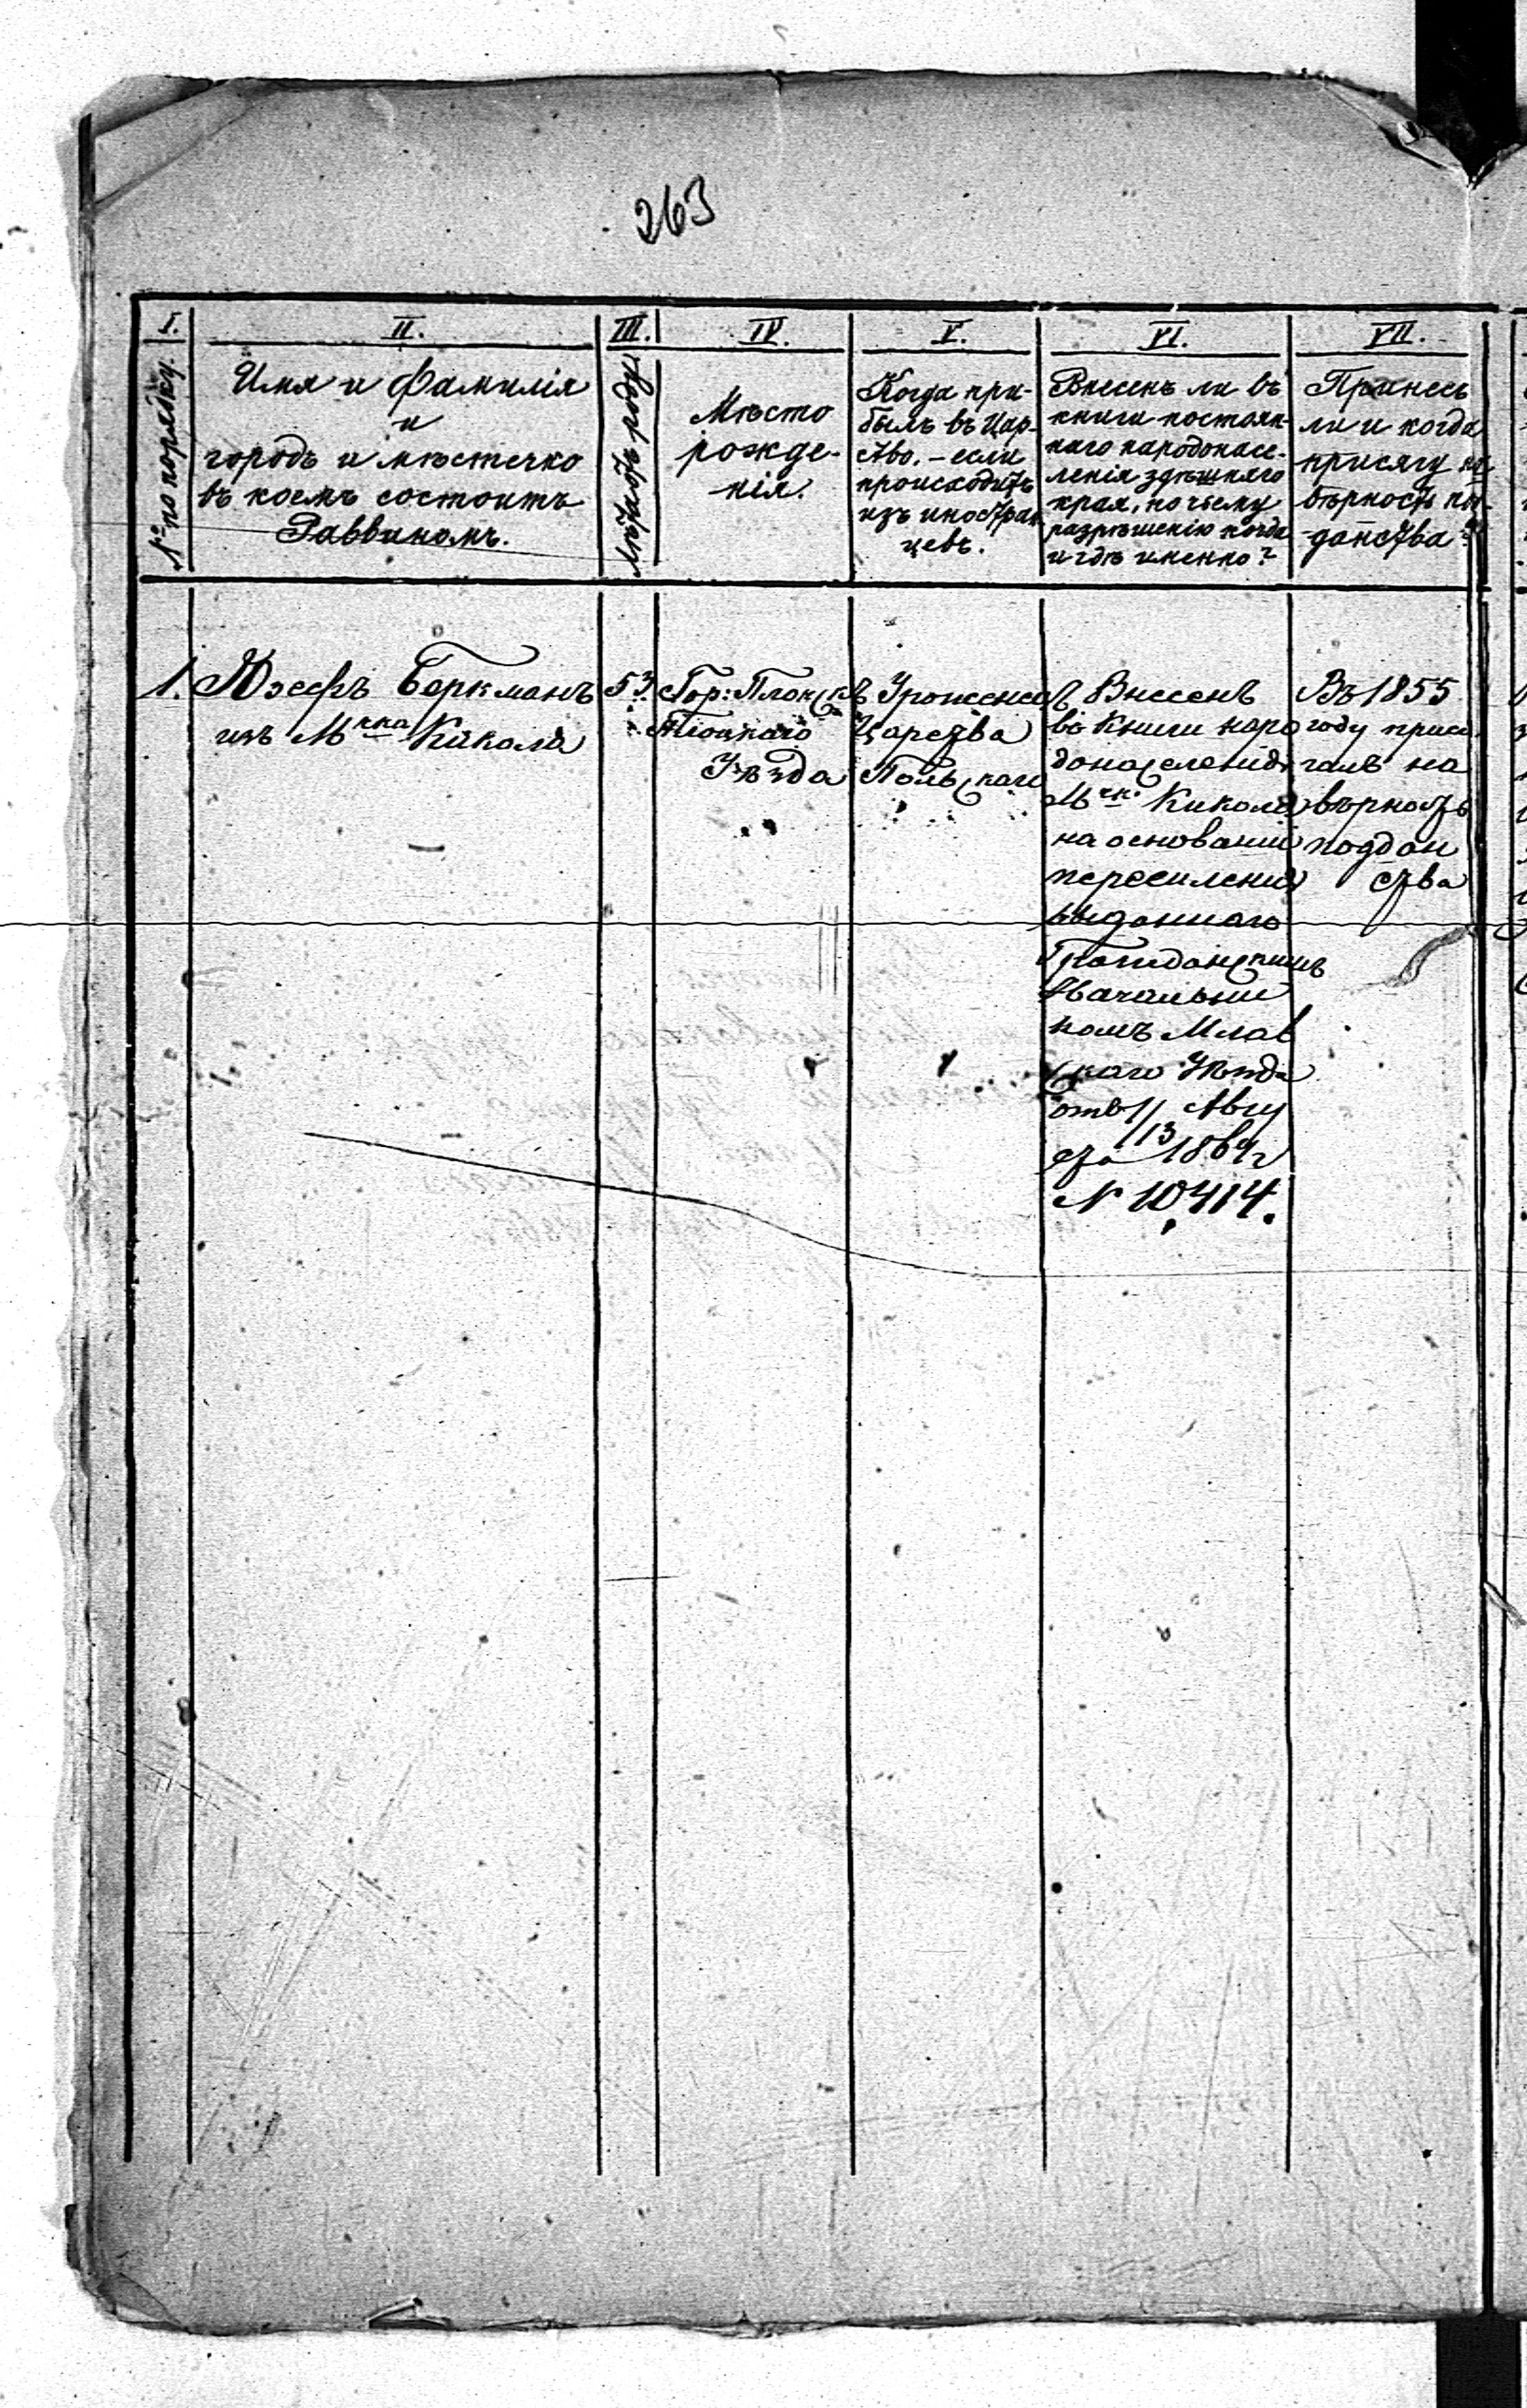 263
I.
№ по порядку.
II.
Имя и Фамилія
и
городъ и мѣстечко
въ коемъ состоитъ
Раввиномъ.
III.
Лѣтъ отъ роду
IV.
Мѣсто
рожде-
нія.
V.
Когда при-
былъ въ Цар-
ство. – если
происходитъ
изъ иностран
цевъ.
VI.
Внесенъ ли въ
книги постоян-
наго народонасе-
ленія здѣшняго
края, по чьему
разрѣшенію когда
и гдѣ именно?
VII.
Принесъ
ли и когда
присягу на
вѣрность по-
данства?
1.
Юзефъ Беркманъ
изъ Мчка Никола
53
Гор: Плоцкъ
Плоцкаго
Уѣзда
Уроженецъ
Царства
Польскаго
Внесенъ
въ книги наро
донаселенія
Мчк. Никола
на основаніи
переселенія
выданнаго
Гражданскимъ
Начальни
комъ Млав
скаго Уѣзда
отъ 1/13 Авгу
ста 1864 г
N 10414.
Въ 1855
году прися
галъ на
вѣрность
поддан
ства